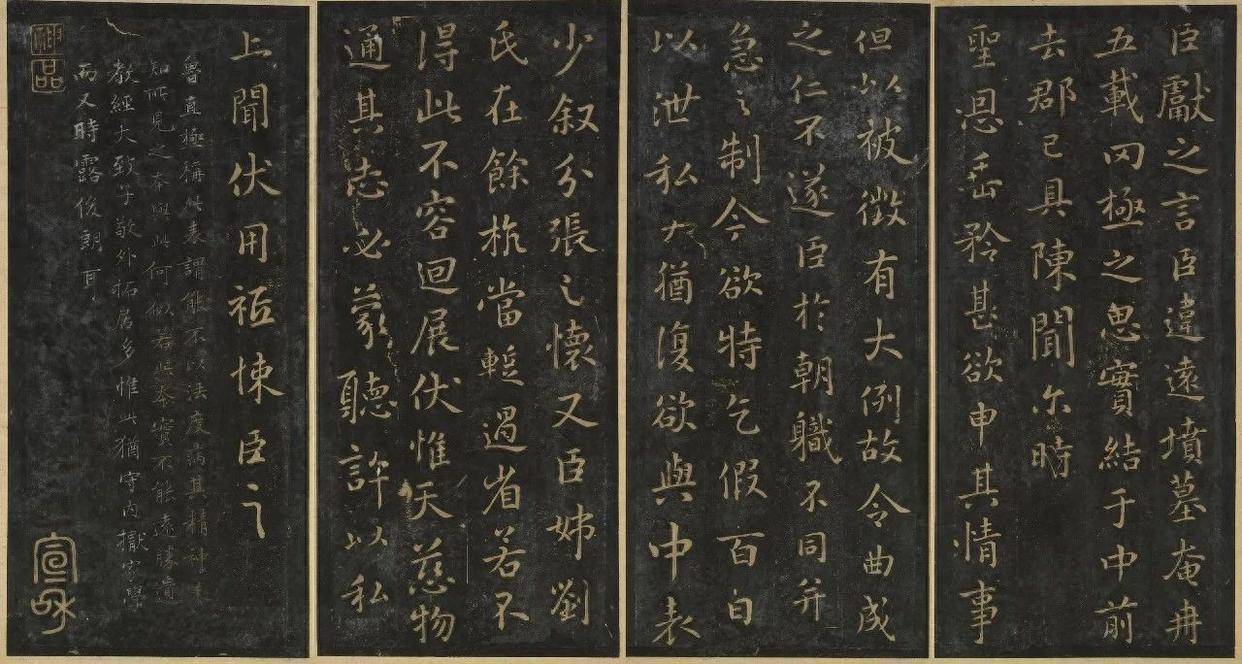 臣獻之言臣違遠墳墓奄冉
五載罔極之思實結于中前
去郡已具陳聞尒時
聖恩垂矜甚欲申其情事
但以被徵有大例故令曲成
之仁不遂臣於朝職不同并
急之制今欲特乞假百日
以泄私大猶復欲與中表
少叙分張之懷又臣姊劉
氏在餘杭當蹔過省若不
得此不容迴展伏惟天慈物
通其志必蒙聽許以私
上聞伏用祗悚臣之
魯直極稱此表謂能不以法度病其精神
知所見之本與此何似若此本實不能遠勝遺
教經大致子敬外拓居多惟此猶守內擫家學
而又時露俊朗耳
宣和